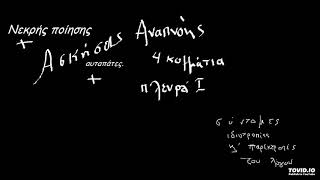 Νεκρής ποίησης
+
Ασκήσεις Αναπνοής
αυταπάτες.
+
4 κομμάτια
πλευρά I
σύντομες
ιδιοτροπίες
κ' παρεκτροπές
του λόγου
TOVID.IO